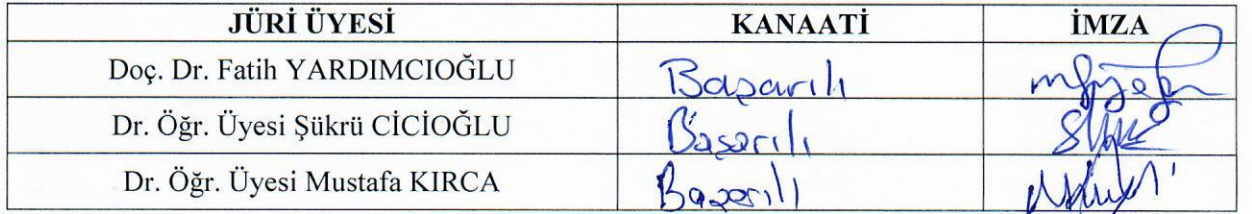 JÜRİ ÜYESİ KANAATİ İMZA
Doç. Dr. Fatih YARDIMCIOĞLU Başarılı
Dr. Öğr. Üyesi Şükrü CİCİOĞLU Başarılı
Dr. Öğr. Üyesi Mustafa KIRCA Başarılı